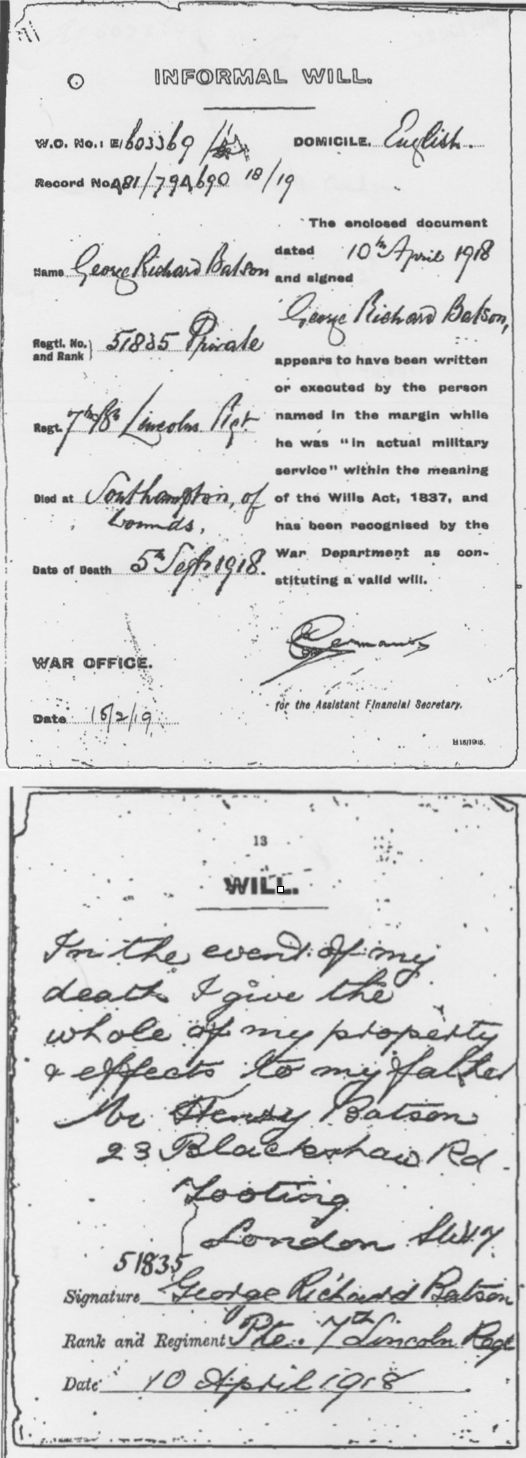 INFORMAL WILL.
W.O. No.: E/603369/
DOMICILE. English.
Record No. 18/19
The enclosed document
dated 10th April 1918
and signed
George Richard Batson,
appears to have been written
or executed by the person
named in the margin while
he was "in actual military
service" within the meaning
of the Wills Act, 1837, and
has been recognised by the
War Department as con-
stituting a valid will.
Name George Richard Batson
Regtl. No. and Rank } 51835 Private
Regt. 7th Bn Lincoln. Rgt.
Died at Southampton, of
wounds,
Date of Death 5th Sept 1918.
for the Assistant Financial Secretary.
WAR OFFICE.
Date 15/2/19
13
WILL.
In the event of my
death I give the
whole of my property
& effects to my father
Mr Henry Batson
23 Blackshaw Rd.
Tooting
London SW17
51835
Signature George Richard Batson
Rank and Regiment Pte. 7th Lincoln Regt
Date 10 April 1918